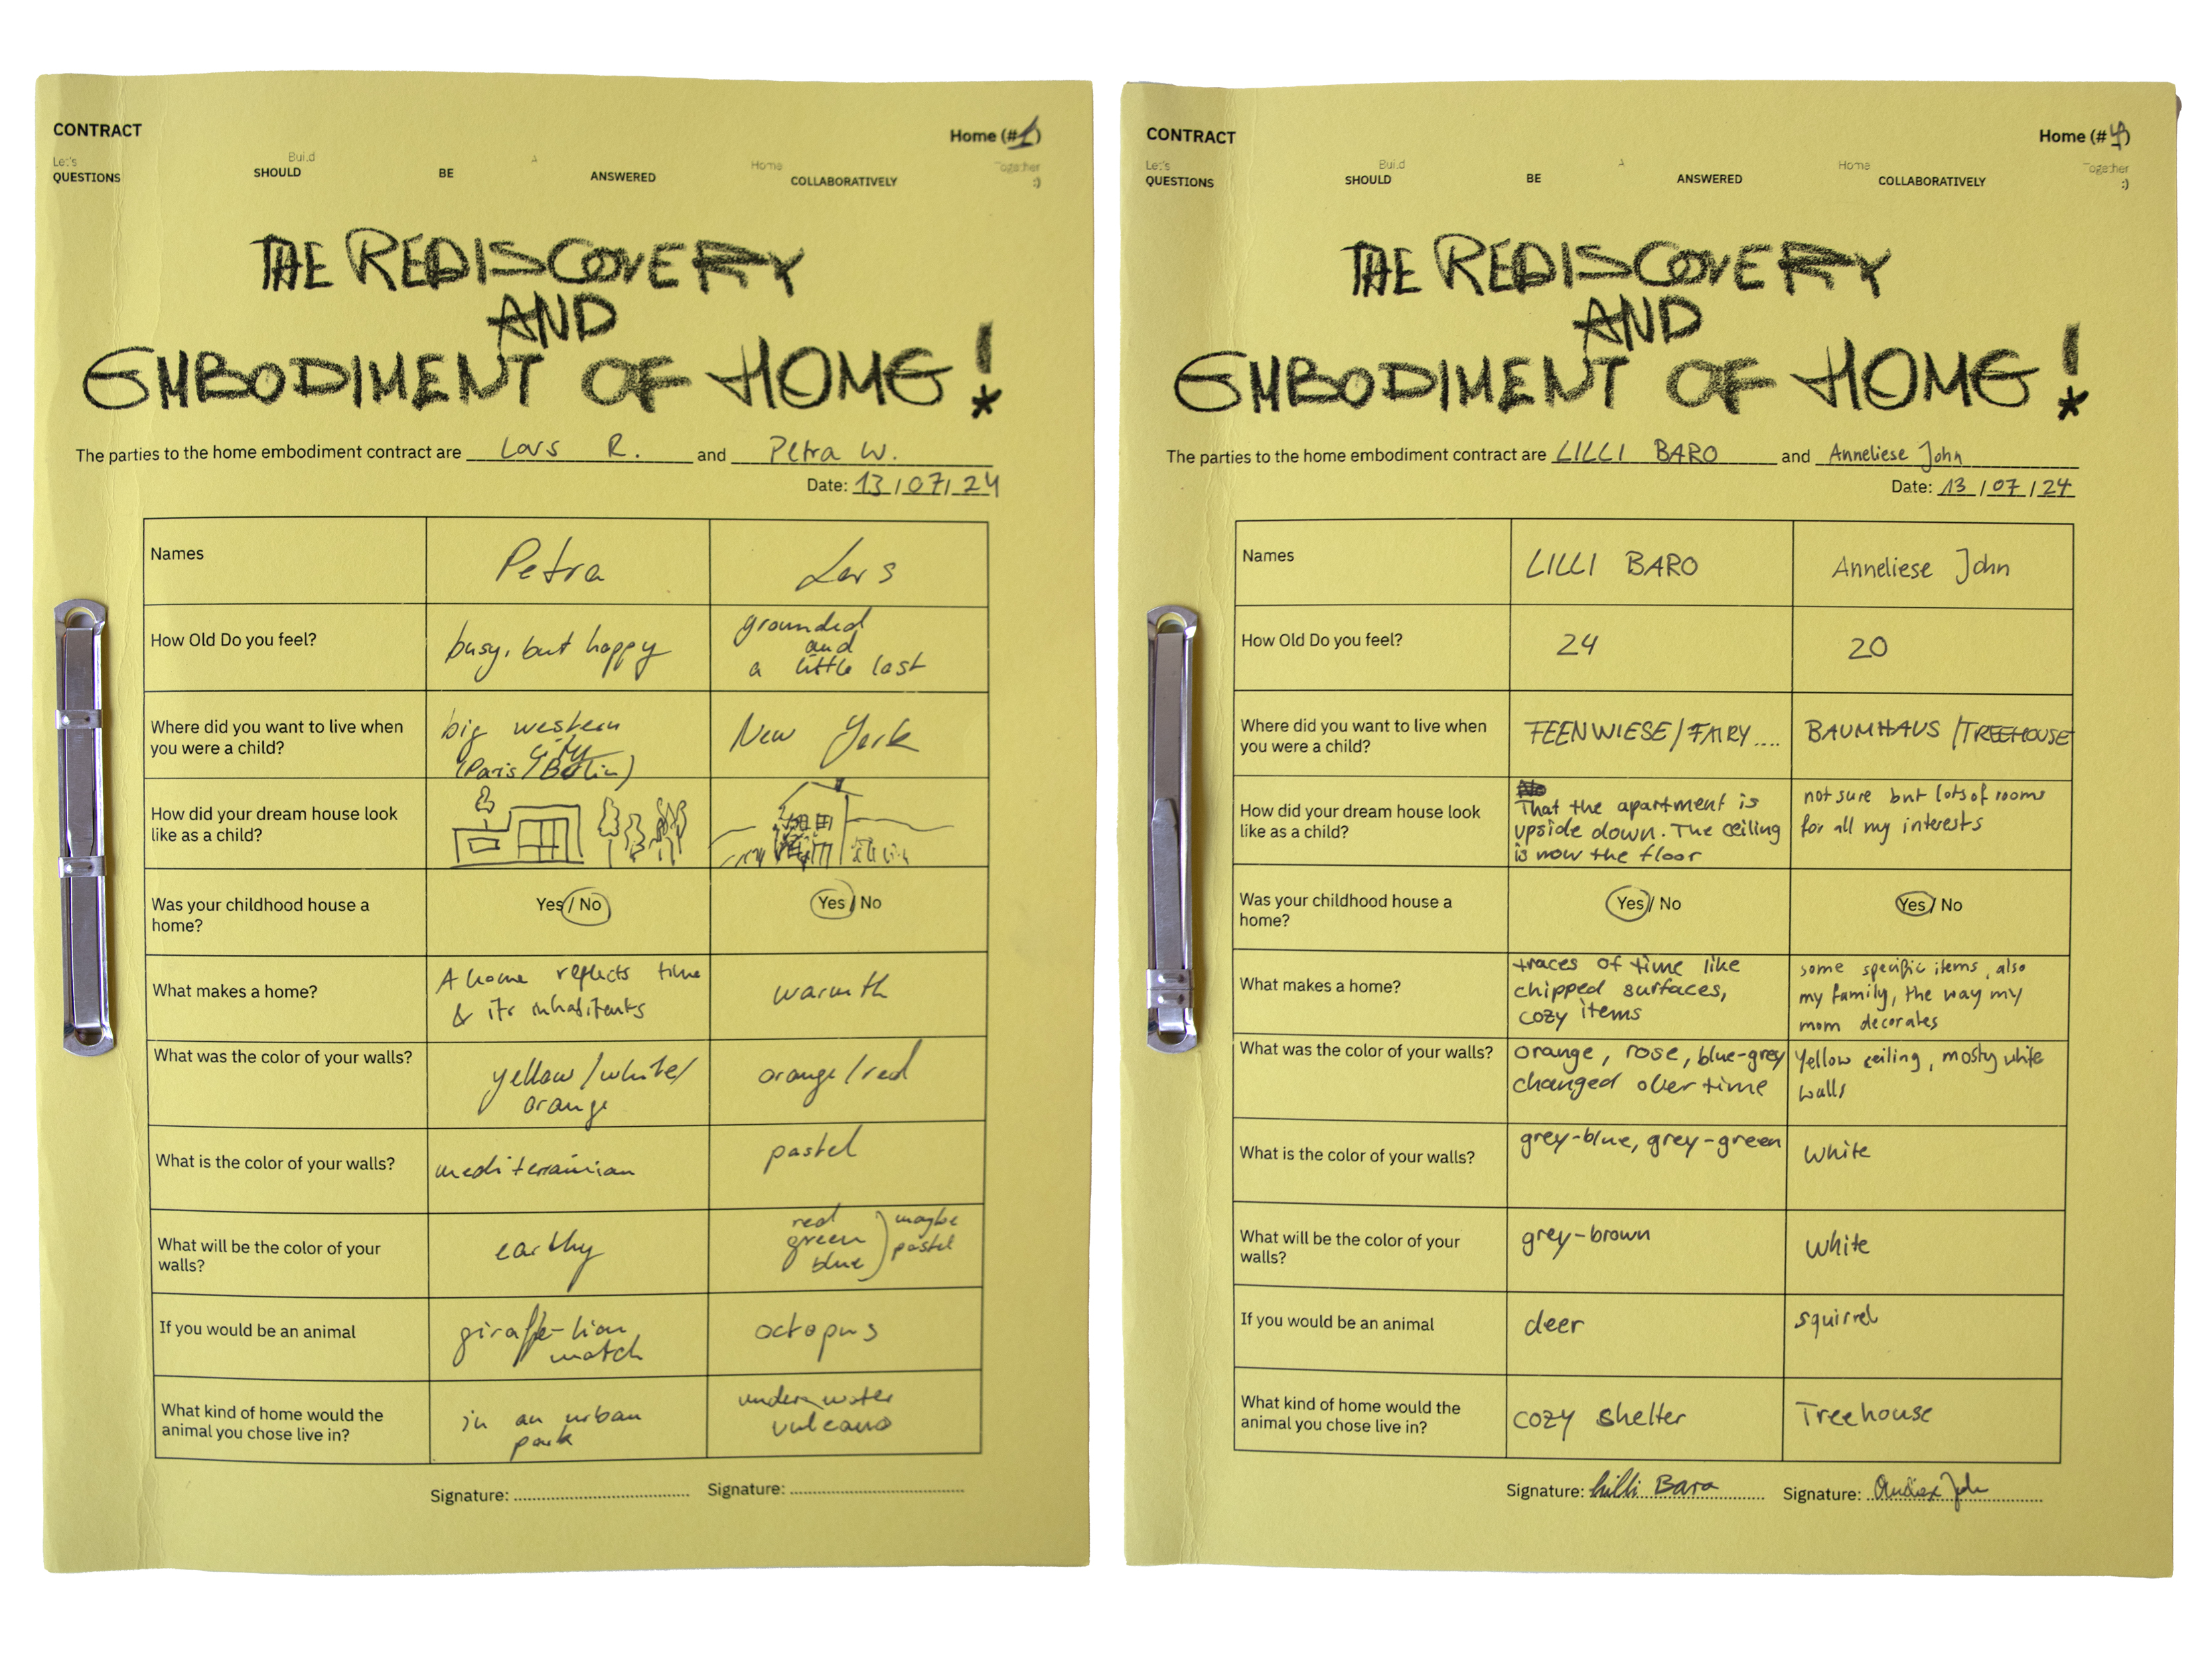 CONTRACT
Home (#1)
Let's Build A Home Together
QUESTIONS SHOULD BE ANSWERED COLLABORATIVELY :)
THE REDISCOVERY
AND
EMBODIMENT OF HOME!
The parties to the home embodiment contract are Lars R. and Petra W.
Date: 13/07/24
Names Petra Lars
How Old Do you feel?
busy, but happy
grounded
and
a little lost
Where did you want to live when
you were a child?
big western
city
(Paris/Berlin)
New York
How did your dream house look
like as a child?
Was your childhood house a
home?
Yes/No
Yes/No
What makes a home?
A home reflects time
& its inhabitants
warmth
What was the color of your walls?
yellow/white/
orange
orange/red
What is the color of your walls?
mediterrainian
pastel
What will be the color of your
walls?
earthy
red
green
blue
maybe
pastel
If you would be an animal
giraffe-lion
match
octopus
What kind of home would the
animal you chose live in?
in an urban
park
underwater
vulcano
Signature: Signature:
CONTRACT
Home (#4)
Let's Build A Home Together
QUESTIONS SHOULD BE ANSWERED COLLABORATIVELY :)
THE REDISCOVERY
AND
EMBODIMENT OF HOME!
The parties to the home embodiment contract are LILLI BARO and Anneliese John
Date: 13/07/24
Names LILLI BARO Anneliese John
How Old Do you feel? 24 20
Where did you want to live when
you were a child?
FEENWIESE/FAIRY....
BAUMHAUS/TREEHOUSE
How did your dream house look
like as a child?
No
That the apartment is
upside down. The ceiling
is now the floor
not sure but lots of rooms
for all my interests
Was your childhood house a
home?
Yes/No
Yes/No
What makes a home?
traces of time like
chipped surfaces,
cozy items
some specific items, also
my family, the way my
mom decorates
What was the color of your walls?
orange, rose, blue-grey
changed over time
Yellow ceiling, mosty white
walls
What is the color of your walls?
grey-blue, grey-green
white
What will be the color of your
walls?
grey-brown
white
If you would be an animal
deer
squirrel
What kind of home would the
animal you chose live in?
cozy shelter
Treehouse
Signature: Lilli Baro Signature: